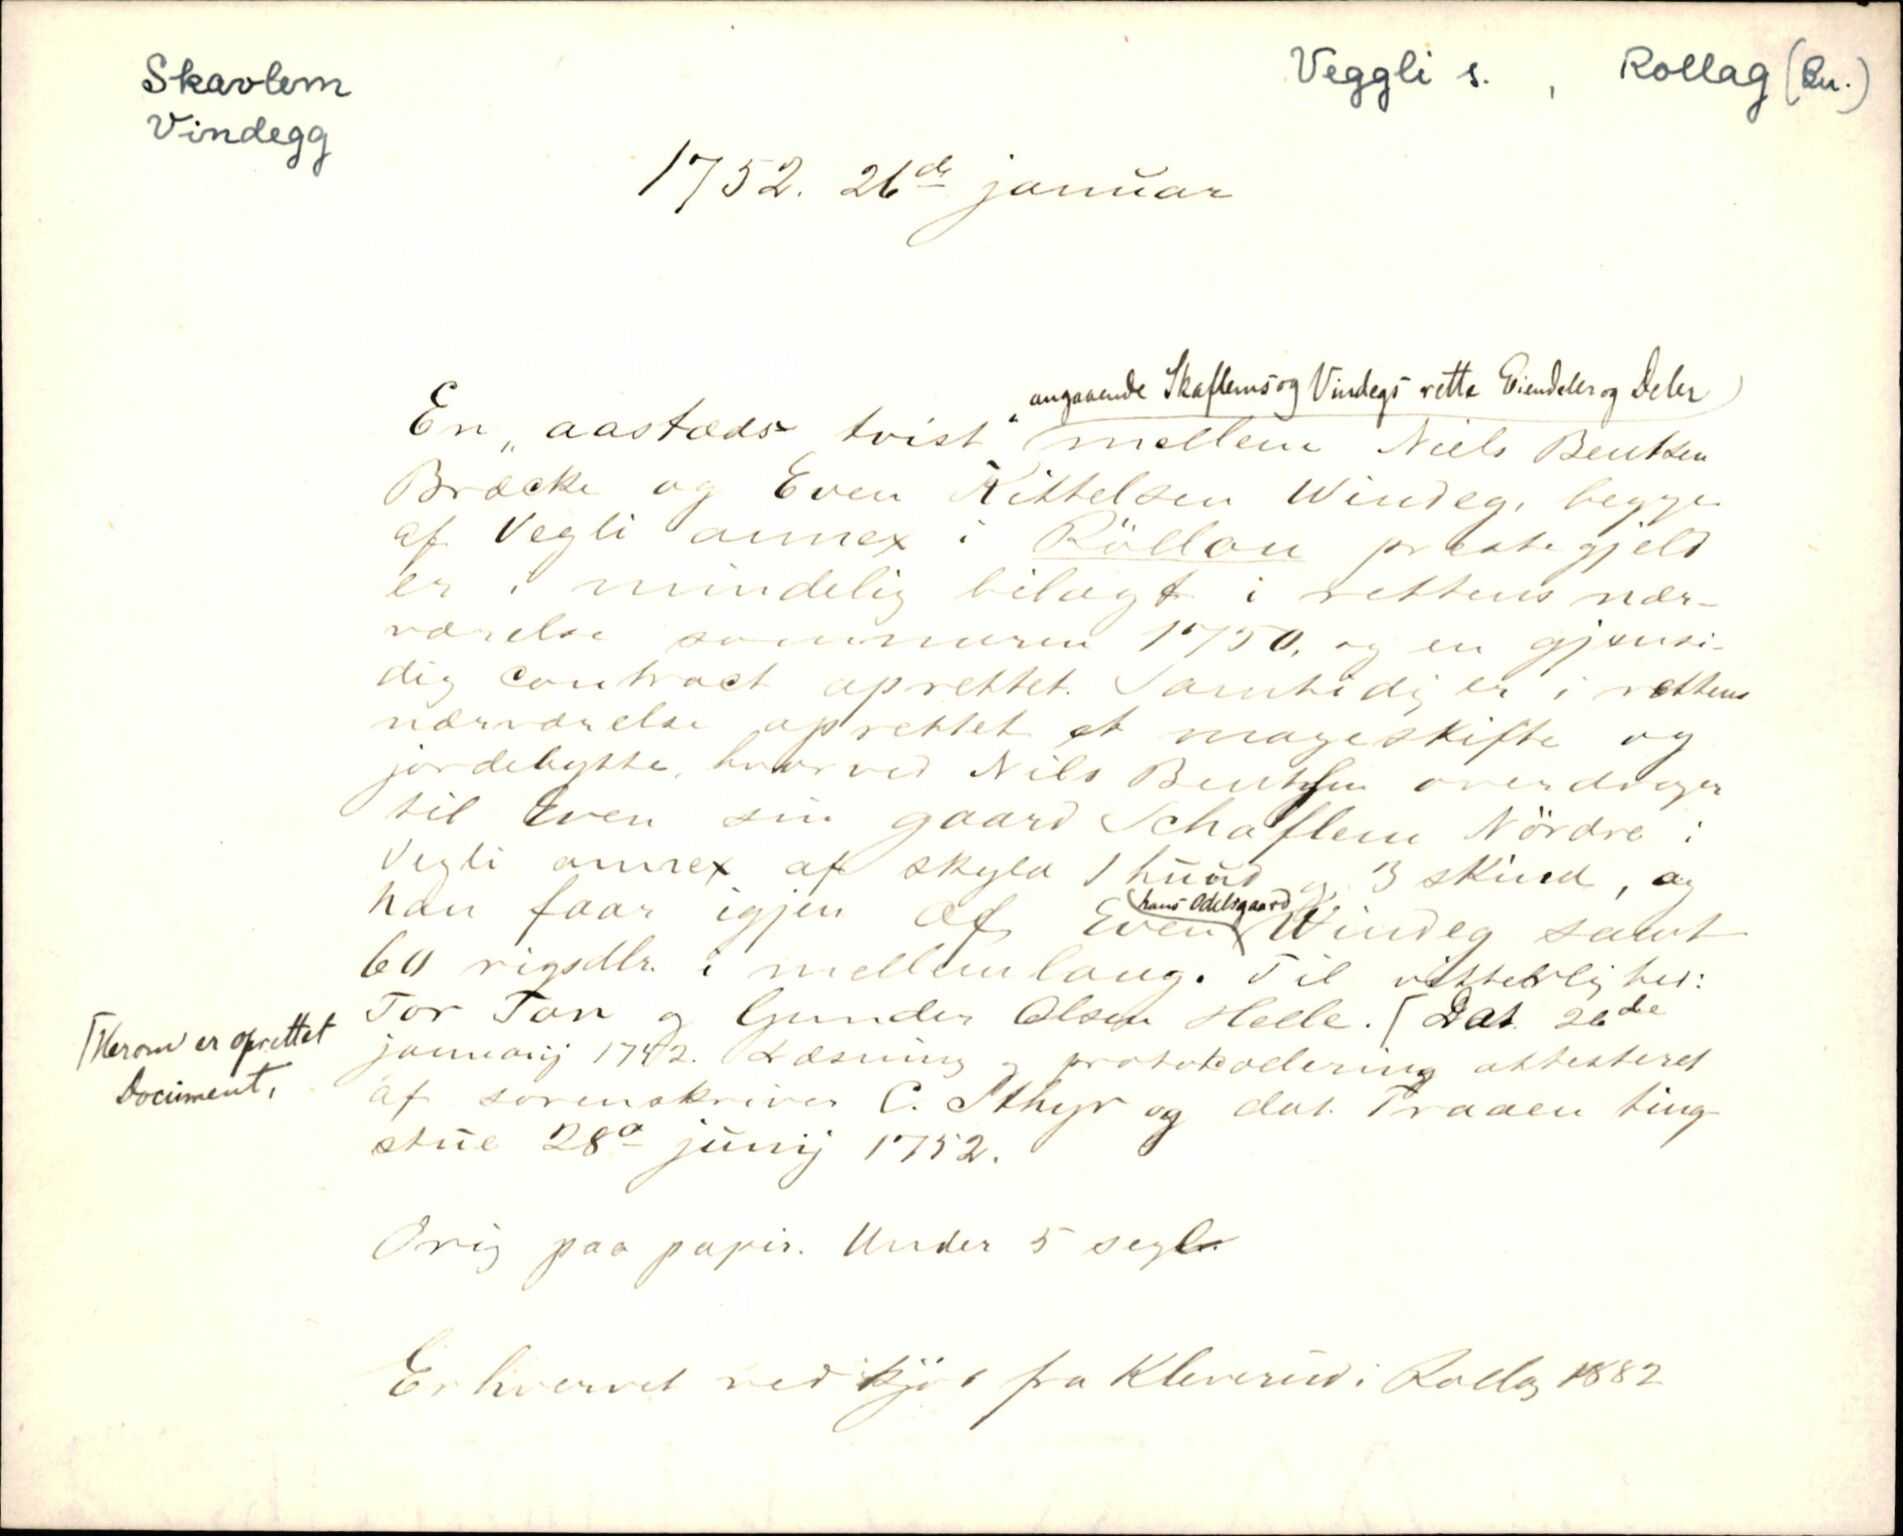 Skavlem
Vindegg
Veggli s. , Rollag (Bu.)
1752. 26de januar
angaaende Skaflems og Vindegs rette Eiendeler og Deler
En „aastæds tvist" mellem Niels Bentsen
Bræcke og Even Kittelsen Windeg, begge
af Vegli annex i Röllou prestegjeld
er i mindelig bilagt i rettens nær-
værelse sommeren 1750, og en gjensi-
dig contract oprettet. Samtidig er i rettens
nærværelse oprettet et mageskifte og
jordebytte, hvorved Nils Bentsen overdrager
til Even sin gaard Schaflem Nördre i
Vegli annex af skyld 1 huud og 3 skind, og
han faar igjen af Even hans Odelsgaard Windeg samt
60 rigsdlr. i mellemlaug. Til vitterlighed:
Tor Ton og Gunder Olsen Helle. [Dat. 26de
[Herom er oprettet
Document,
januarij 1752. Læsning og protokollering attesteret
af sorenskriver C. Sthyr og dat. Traaen ting-
stue 28a junij 1752.
Orig paa papir. Under 5 segl.
Erhvervet ved kjöb fra Kleverud i Rollag 1882